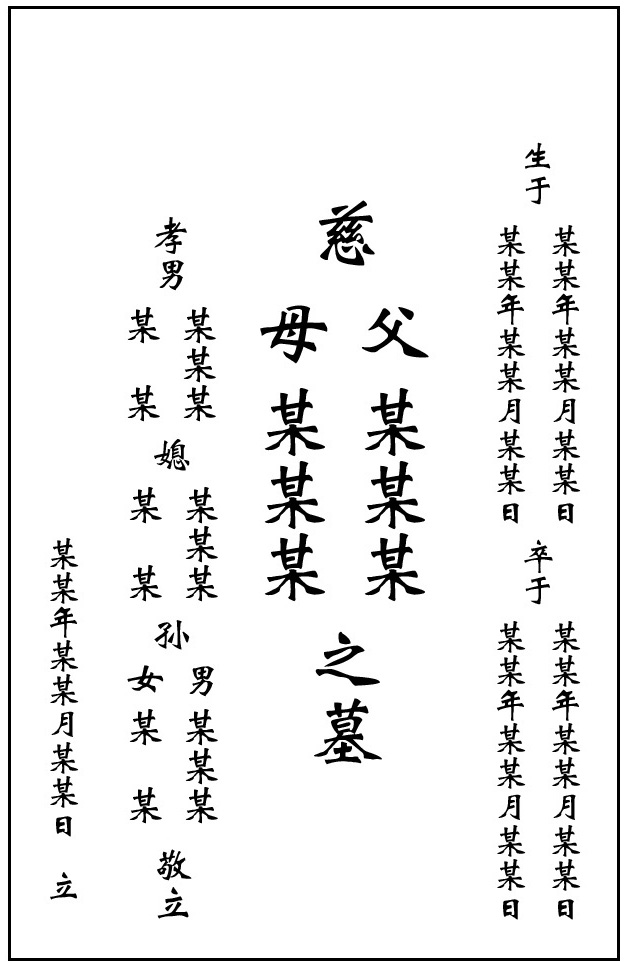 生于
某某年某某月某某日
某某年某某月某某日
卒于
某某年某某月某某日
某某年某某月某某日
慈
父某某某
母某某某
之墓
孝男
某某某
某某
媳
某某某
某某
孙
男某某某
女某某
敬立
某某年某某月某某日 立